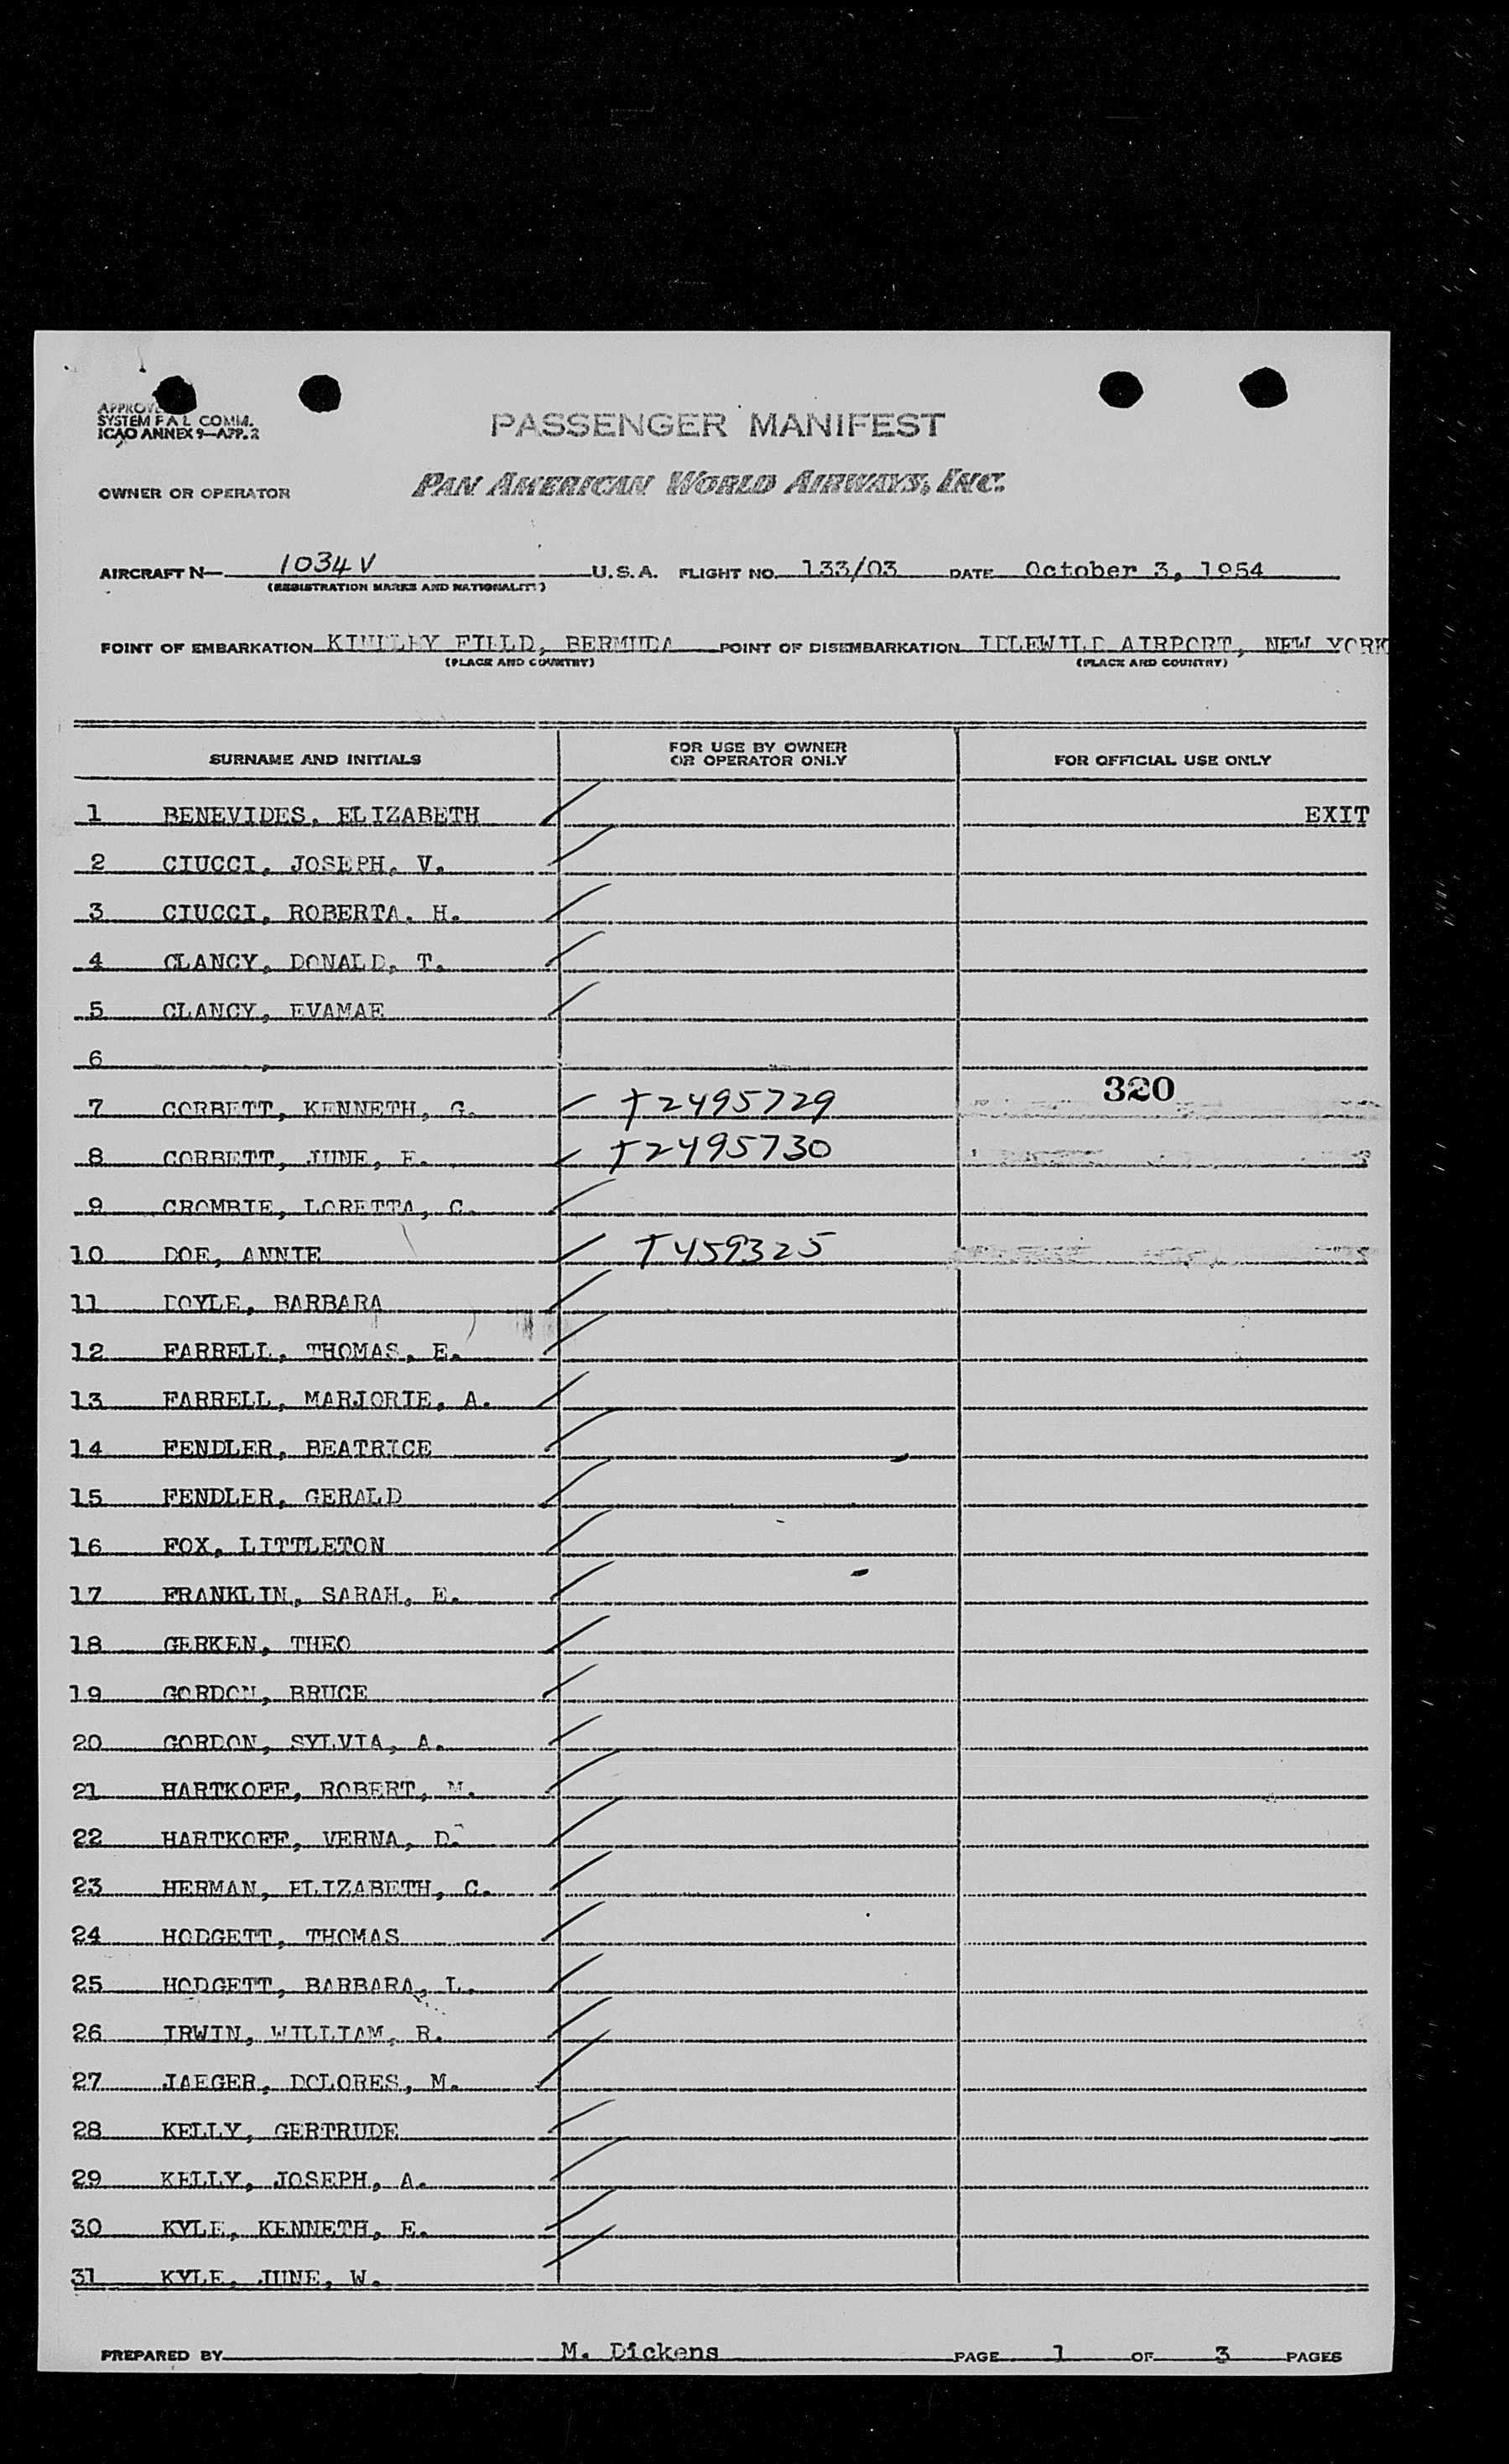 SYSTEM F A L COMM.
ICAO ANNEX 9—APP. 2
PASSENGER MANIFEST
OWNER OR OPERATOR PAN AMERICAN WORLD AIRWAYS, INC.
AIRCRAFT N— 1034V U.S.A. FLIGHT NO. 133/03 DATE October 3, 1954
(REGISTRATION MARKS AND NATIONALITY)
POINT OF EMBARKATION KINDLEY FIELD, BERMUDA POINT OF DISEMBARKATION IDLEWILD AIRPORT, NEW YORK
(PLACE AND COUNTRY) (PLACE AND COUNTRY)
SURNAME AND INITIALS FOR USE BY OWNER OR OPERATOR ONLY FOR OFFICIAL USE ONLY
1 BENEVIDES, ELIZABETH EXIT
2 CIUCCI, JOSEPH, V.
3 CIUCCI, ROBERTA, H.
4 CLANCY, DONALD, T.
5 CLANCY, EVAMAE
6 ,
320
7 CORBETT, KENNETH, G. T2495729
8 CORBETT, JUNE, E. T2495730
9 CROMBIE, LORETTA, C.
10 DOE, ANNIE T459325
11 DOYLE, BARBARA
12 FARRELL, THOMAS, E.
13 FARRELL, MARJORIE, A.
14 FENDLER, BEATRICE
15 FENDLER, GERALD
16 FOX, LITTLETON
17 FRANKLIN, SARAH, E.
18 GERKEN, THEO
19 GORDON, BRUCE
20 GORDON, SYLVIA, A.
21 HARTKOFF, ROBERT, M.
22 HARTKOFF, VERNA, D.
23 HERMAN, ELIZABETH, C.
24 HODGETT, THOMAS
25 HODGETT, BARBARA, L.
26 IRWIN, WILLIAM, R.
27 JAEGER, DOLORES, M.
28 KELLY, GERTRUDE
29 KELLY, JOSEPH, A.
30 KYLE, KENNETH, E.
31 KYLE, JUNE, W.
PREPARED BY M. Dickens PAGE 1 OF 3 PAGES